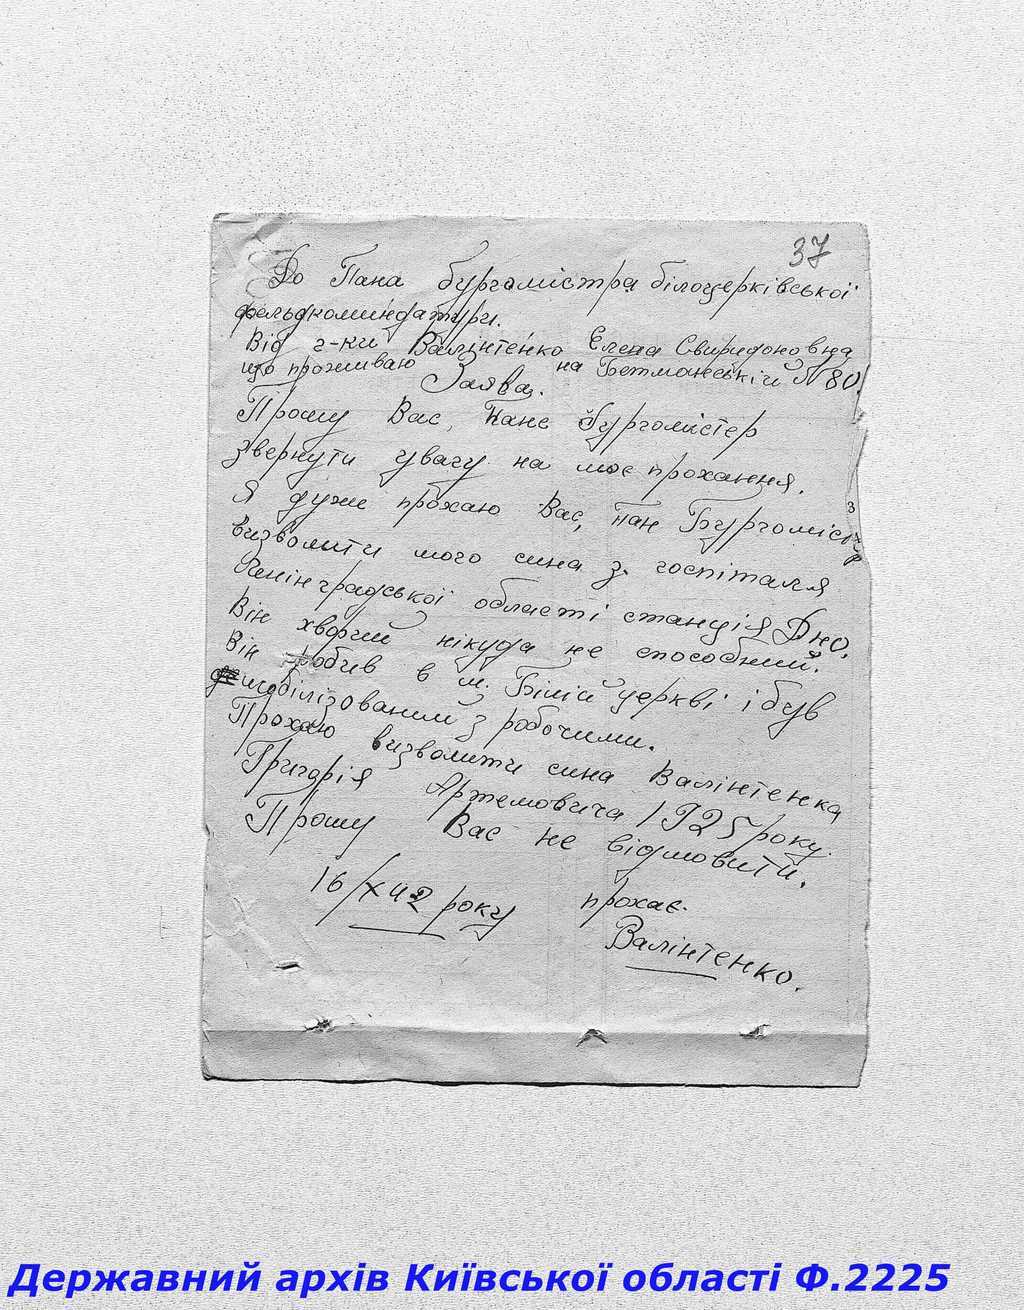 37
До Пана бургомістра білоцерківської
фельдкоминдатури.
Від г-ки Валінтенко Елена Свиридоновна
що проживаю на Гетманській № 80.
Заява.
Прошу Вас, Пане Бургомістер
звернути увагу на моє прохання.
Я дуже прохаю Вас, пан Бургоміст
визволити мого сина з госпіталя
Ленінградської області станція Дно.
Він хворий нікуда не способний.
Він робив в м. Білій церкві і був
мобілізованим з робочими.
Прохаю визволити сина Валінтенка
Григорія Артемовича 1925 року.
Прошу Вас не відмовити.
16/X 42 року прохає.
Валінтенко.
Державний архів Київської області Ф.2225